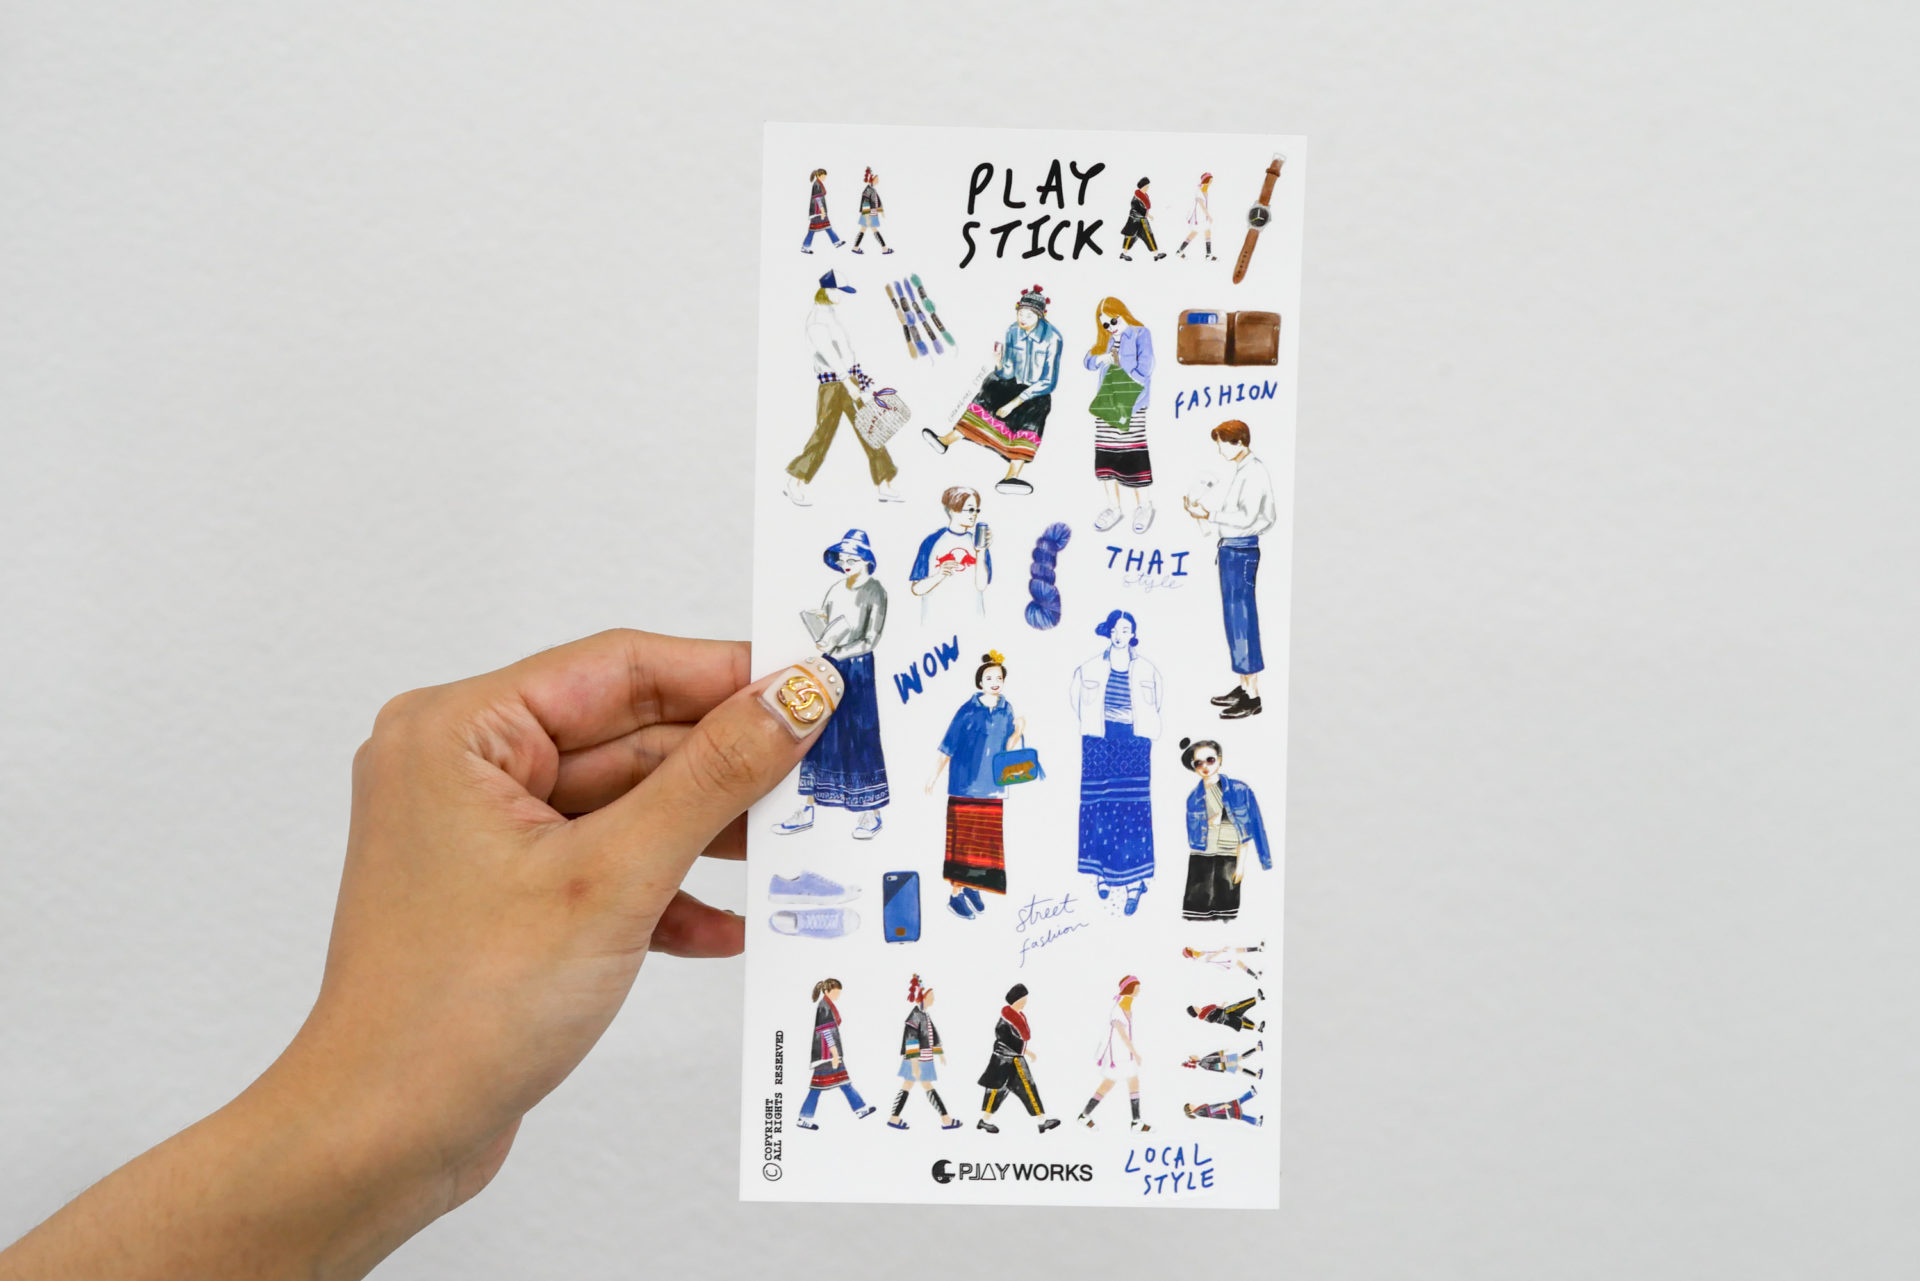 PLAY
STICK
FASHION
THAI
style
WOW
street
fashion
© COPYRIGHT
ALL RIGHTS RESERVED
PLAYWORKS
LOCAL
STYLE